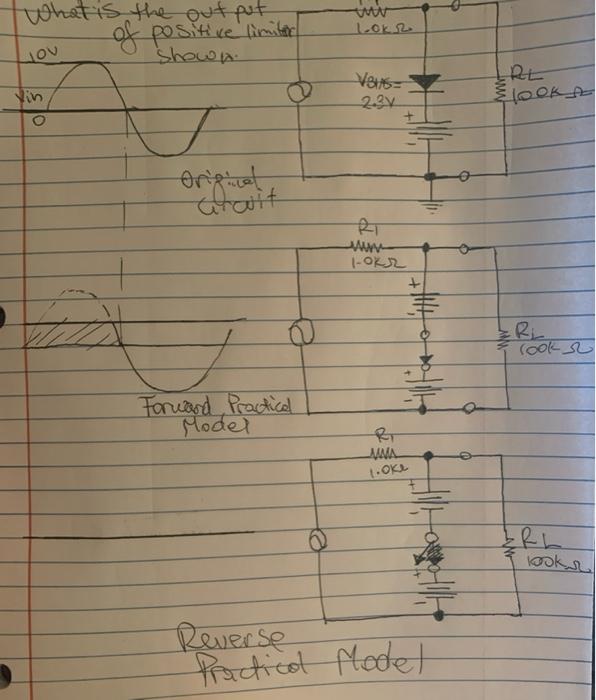 What is the out put
of positive limiter
shown.
10V
Vin
0
1.0kΩ
VBIAS=
2.3V
+
-
RL
100kΩ
Original
Circuit
R1
1.0kΩ
+
-
+
-
RL
100kΩ
Forward Practical
Model
R1
1.0kΩ
+
-
+
-
RL
100kΩ
Reverse
Practical Model